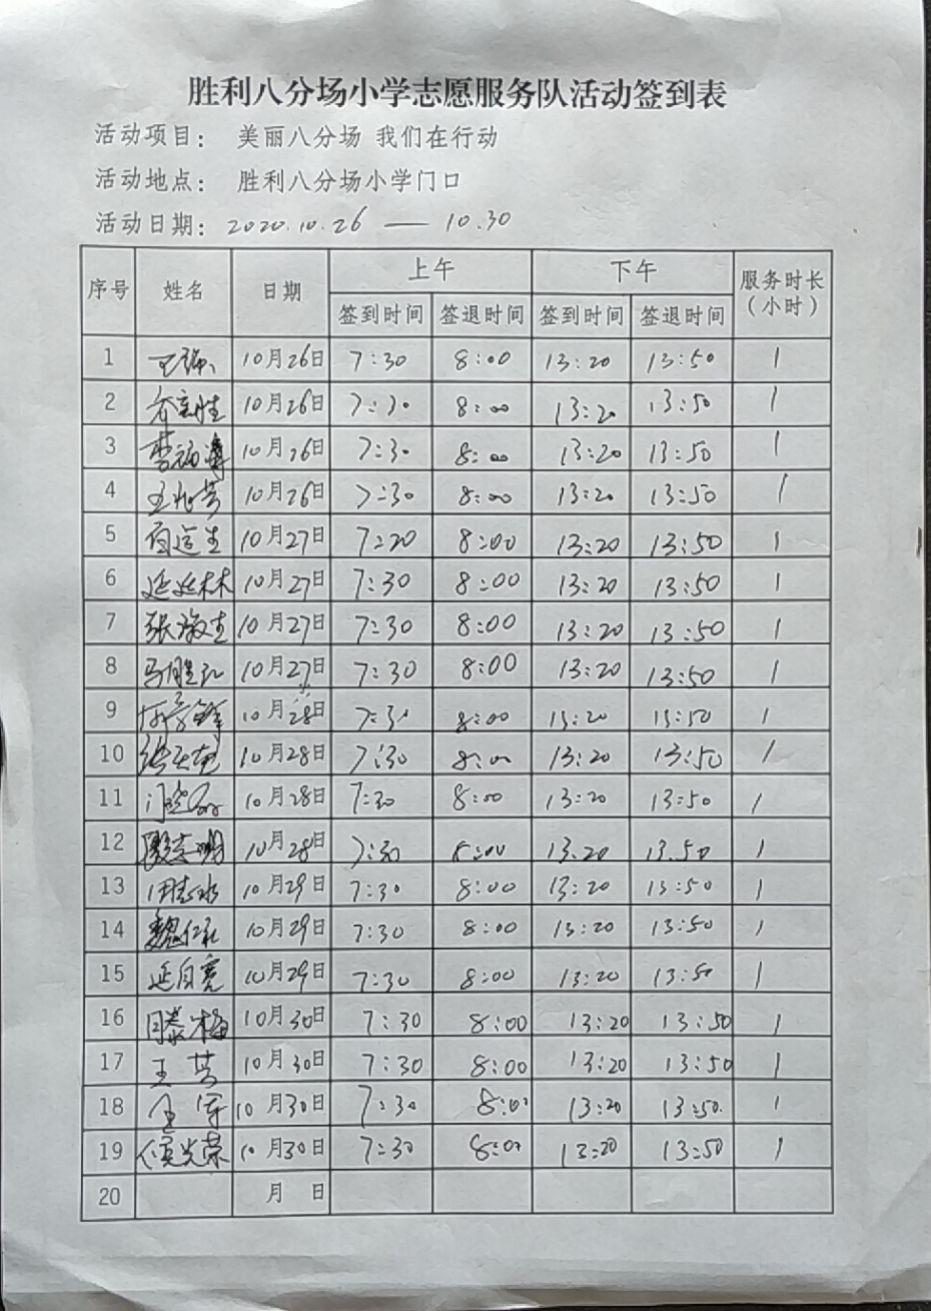 胜利八分场小学志愿服务队活动签到表
活动项目： 美丽八分场 我们在行动
活动地点： 胜利八分场小学门口
活动日期： 2020.10.26 — 10.30
序号 姓名 日期 上午 下午 服务时长（小时）
签到时间 签退时间 签到时间 签退时间
1 10月26日 7:30 8:00 13:20 13:50 1
2 10月26日 7:30 8:00 13:20 13:50 1
3 10月26日 7:30 8:00 13:20 13:50 1
4 10月26日 7:30 8:00 13:20 13:50 1
5 10月27日 7:20 8:00 13:20 13:50 1
6 延延林 10月27日 7:30 8:00 13:20 13:50 1
7 10月27日 7:30 8:00 13:20 13:50 1
8 马胜红 10月27日 7:30 8:00 13:20 13:50 1
9 10月28日 7:30 8:00 13:20 13:50 1
10 10月28日 7:30 8:00 13:20 13:50 1
11 10月28日 7:30 8:00 13:20 13:50 1
12 殷志明 10月28日 7:30 8:00 13.20 13.50 1
13 10月29日 7:30 8:00 13:20 13:50 1
14 魏仁礼 10月29日 7:30 8:00 13:20 13:50 1
15 延自宽 10月29日 7:30 8:00 13:20 13:50 1
16 滕梅 10月30日 7:30 8:00 13:20 13:50 1
17 王芳 10月30日 7:30 8:00 13:20 13:50 1
18 10月30日 7:30 8:00 13:20 13:50. 1
19 侯光荣 10月30日 7:30 8:00 13:20 13:50 1
20 月 日